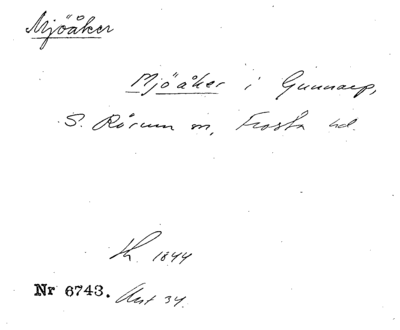 Mjöåker
Mjöåker i Gunnarp,
S. Rörum sn, Frosta hd.
1844
Nr 6743. Avst 34.